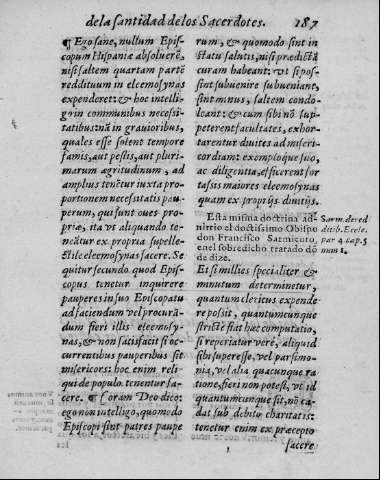 de la santidad de los Sacerdotes. 187
¶ Ego sane, nullum Epis-
copum Hispaniæ absoluerẽ,
nisi saltem quartam partẽ
reddituum in eleemosynas
expenderet: & hoc intelli-
go in communibus necessi-
tatibus: nã in grauioribus,
quales esse solent tempore
famis, aut pestis, aut pluri-
marum ægritudinum, ad
amplius tenẽtur iuxta pro-
portionem necessitatis pau-
perum, qui sunt oues pro-
priæ, ita vt aliquando te-
neãtur ex propria supelle-
ctile eleemosynas facere. Se
quitur secundo, quod Epis-
copus tenetur inquirere
pauperes in suo Episcopatu
ad faciendum vel procurã-
dum fieri illis eleemosy-
nas, & non satisfacit si oc-
currentibus pauperibus sit
misericors: hoc enim reli-
qui de populo tenentur fa-
cere. ¶ Coram Deo dico:
ego non intelligo, quomodo
Episcopi sint patres paupe
rum, & quomodo sint in
statu salutis, nisi prædictã
curam habeant: vt si pos-
sint subuenire subueniant,
sint minus, saltem condo-
leant: & cum sibi nõ sup-
peterent facultates, exhor-
tarentur diuites ad miseri-
cordiam: exemplo que suo,
ac diligentia, efficerent for
tassis maiores eleemosynas
quam ex proprijs diuitijs.
Esta misma doctrina ad-
uirtio el doctissimo Obispo
don Francisco Sarmiento,
en el sobredicho tratado dõ
de dize.
Sarm. de red
ditib. Eccle.
par 4. cap. 5
num 1.
Et si millies specialiter &
minutum determinetur,
quantum clericus expende-
re possit, quantumcunque
strictè fiat hæc computatio,
si reperiatur verè, aliquid
sibi superesse, vel parsimo-
nia, vel alia quacunque ra
tione, fieri non potest, vt id
quantumcunque sit, nõ ca-
dat sub debito charitatis:
tenetur enim ex præcepto
facere